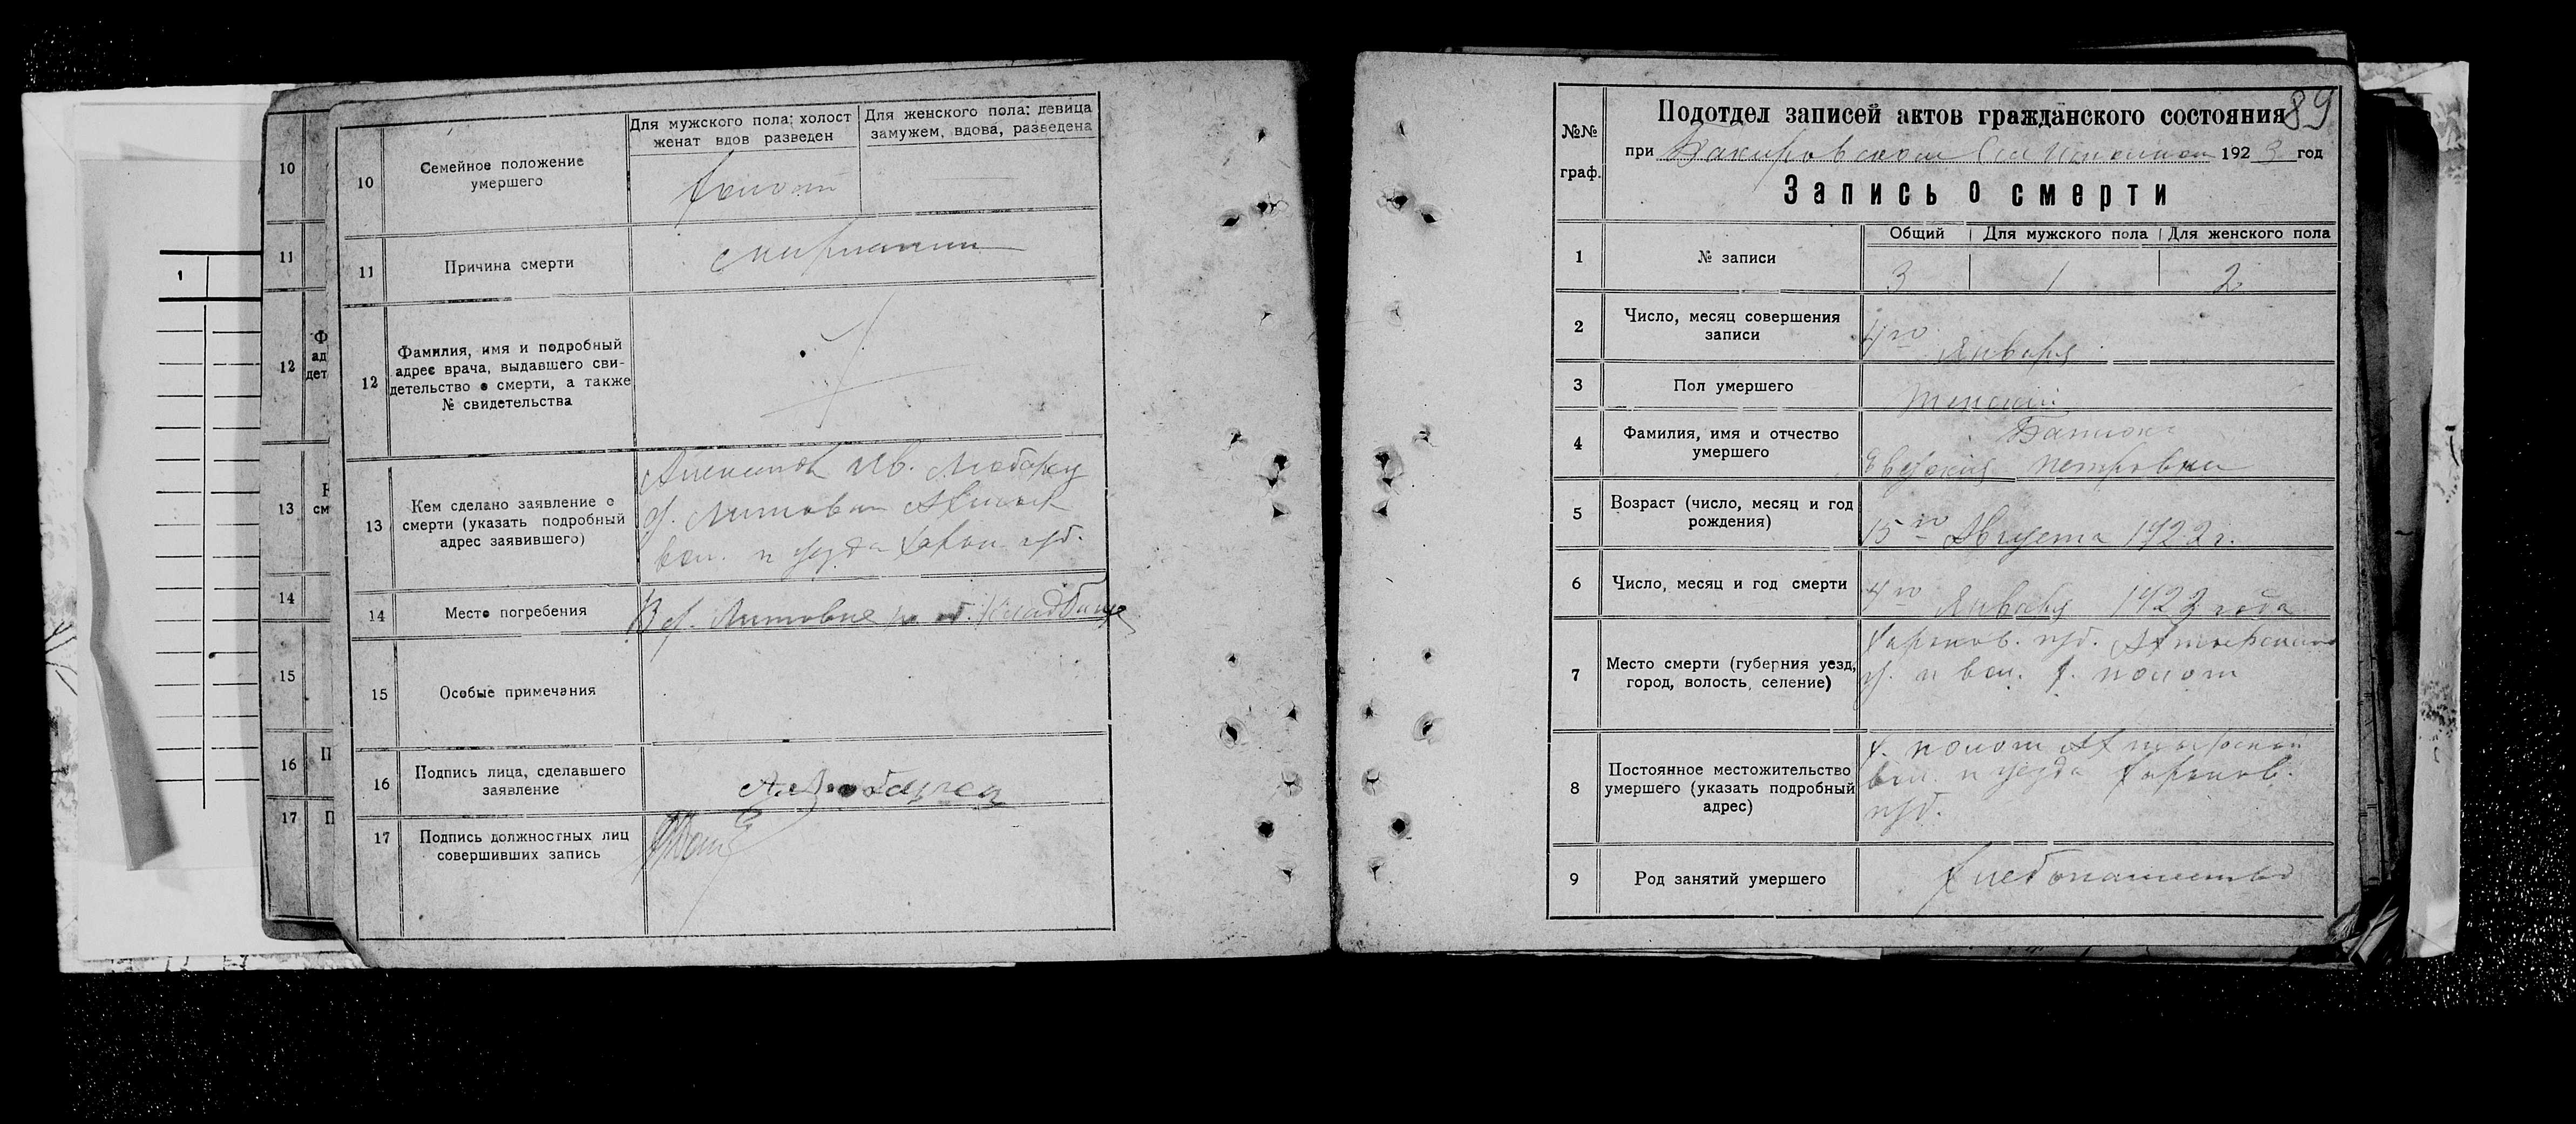 10
11
12
13
14
15
16
17
1
Ф
ад
дет
10
Семейное положение
умершего
Для мужского пола: холост
женат вдов разведен
Для женского пола: девица
замужем, вдова, разведена
холост
11
Причина смерти
скарлатин
12
Фамилия, имя и подробный
адрес врача, выдавшего сви-
детельство о смерти, а также
№ свидетельства
13
Кем сделано заявление о
смерти (указать подробный
адрес заявившего)
вол. и уезда Харьк губ.
14
Место погребения
В кладбище
15
Особые примечания
16
Подпись лица, сделавшего
заявление
17
Подпись должностных лиц
совершивших запись
89
№№
граф.
Подотдел записей актов гражданского состояния
при Бакировском 1923 год
Запись о смерти
1
№ записи
Общий Для мужского пола Для женского пола
3 1 2
2
Число, месяц совершения
записи
4го Января
3
Пол умершего
Женский
4
Фамилия, имя и отчество
умершего
Евдокия Петровна
5
Возраст (число, месяц и год
рождения)
15го Августа 1922 г.
6
Число, месяц и год смерти
4го Января 1923 года
7
Место смерти (губерния уезд,
город, волость, селение)
Харьков. губ. Ахтырского
у. и вол. х.
8
Постоянное местожительство
умершего (указать подробный
адрес)
х. Ахтырской
вол. и уезда Харьков.
губ.
9
Род занятий умершего
Хлебопашество